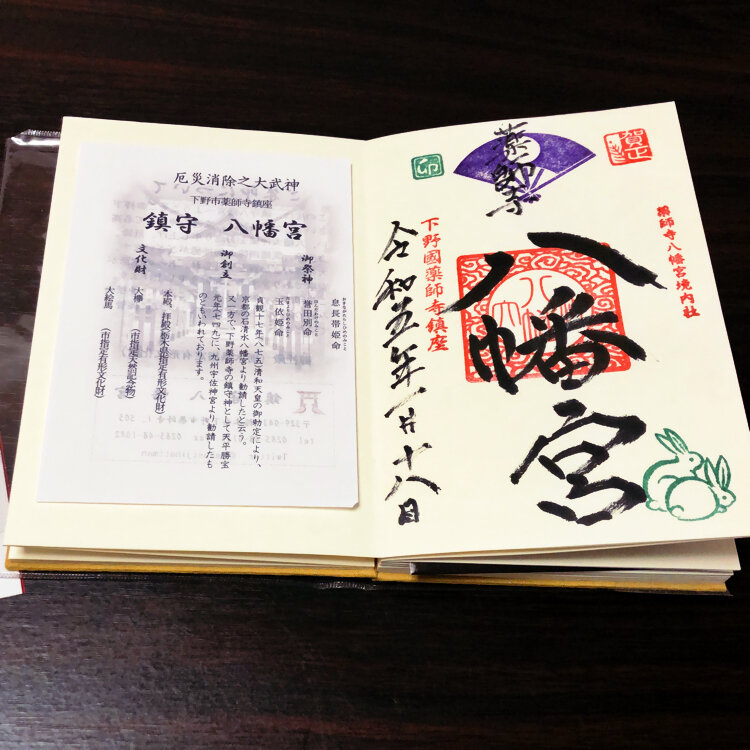 厄災消除之大武神
下野市薬師寺鎮座
鎮守 八幡宮
御祭神
息長帯姫命
誉田別命
玉依姫命
御創立
貞観十七年(八七五)清和天皇の御勅定により、
京都の石清水八幡宮より勧請したと云う。
又一方で、下野薬師寺の鎮守神として天平勝宝
元年(七四九)に、九州宇佐神宮より勧請したも
のともいわれております。
文化財
本殿、拝殿(栃木県指定有形文化財)
大欅 (市指定天然記念物)
大絵馬 (市指定有形文化財)
賀正
薬師寺八幡宮境内社
薬師寺
八幡宮
卯
下野國薬師寺鎮座
令和五年一月十八日